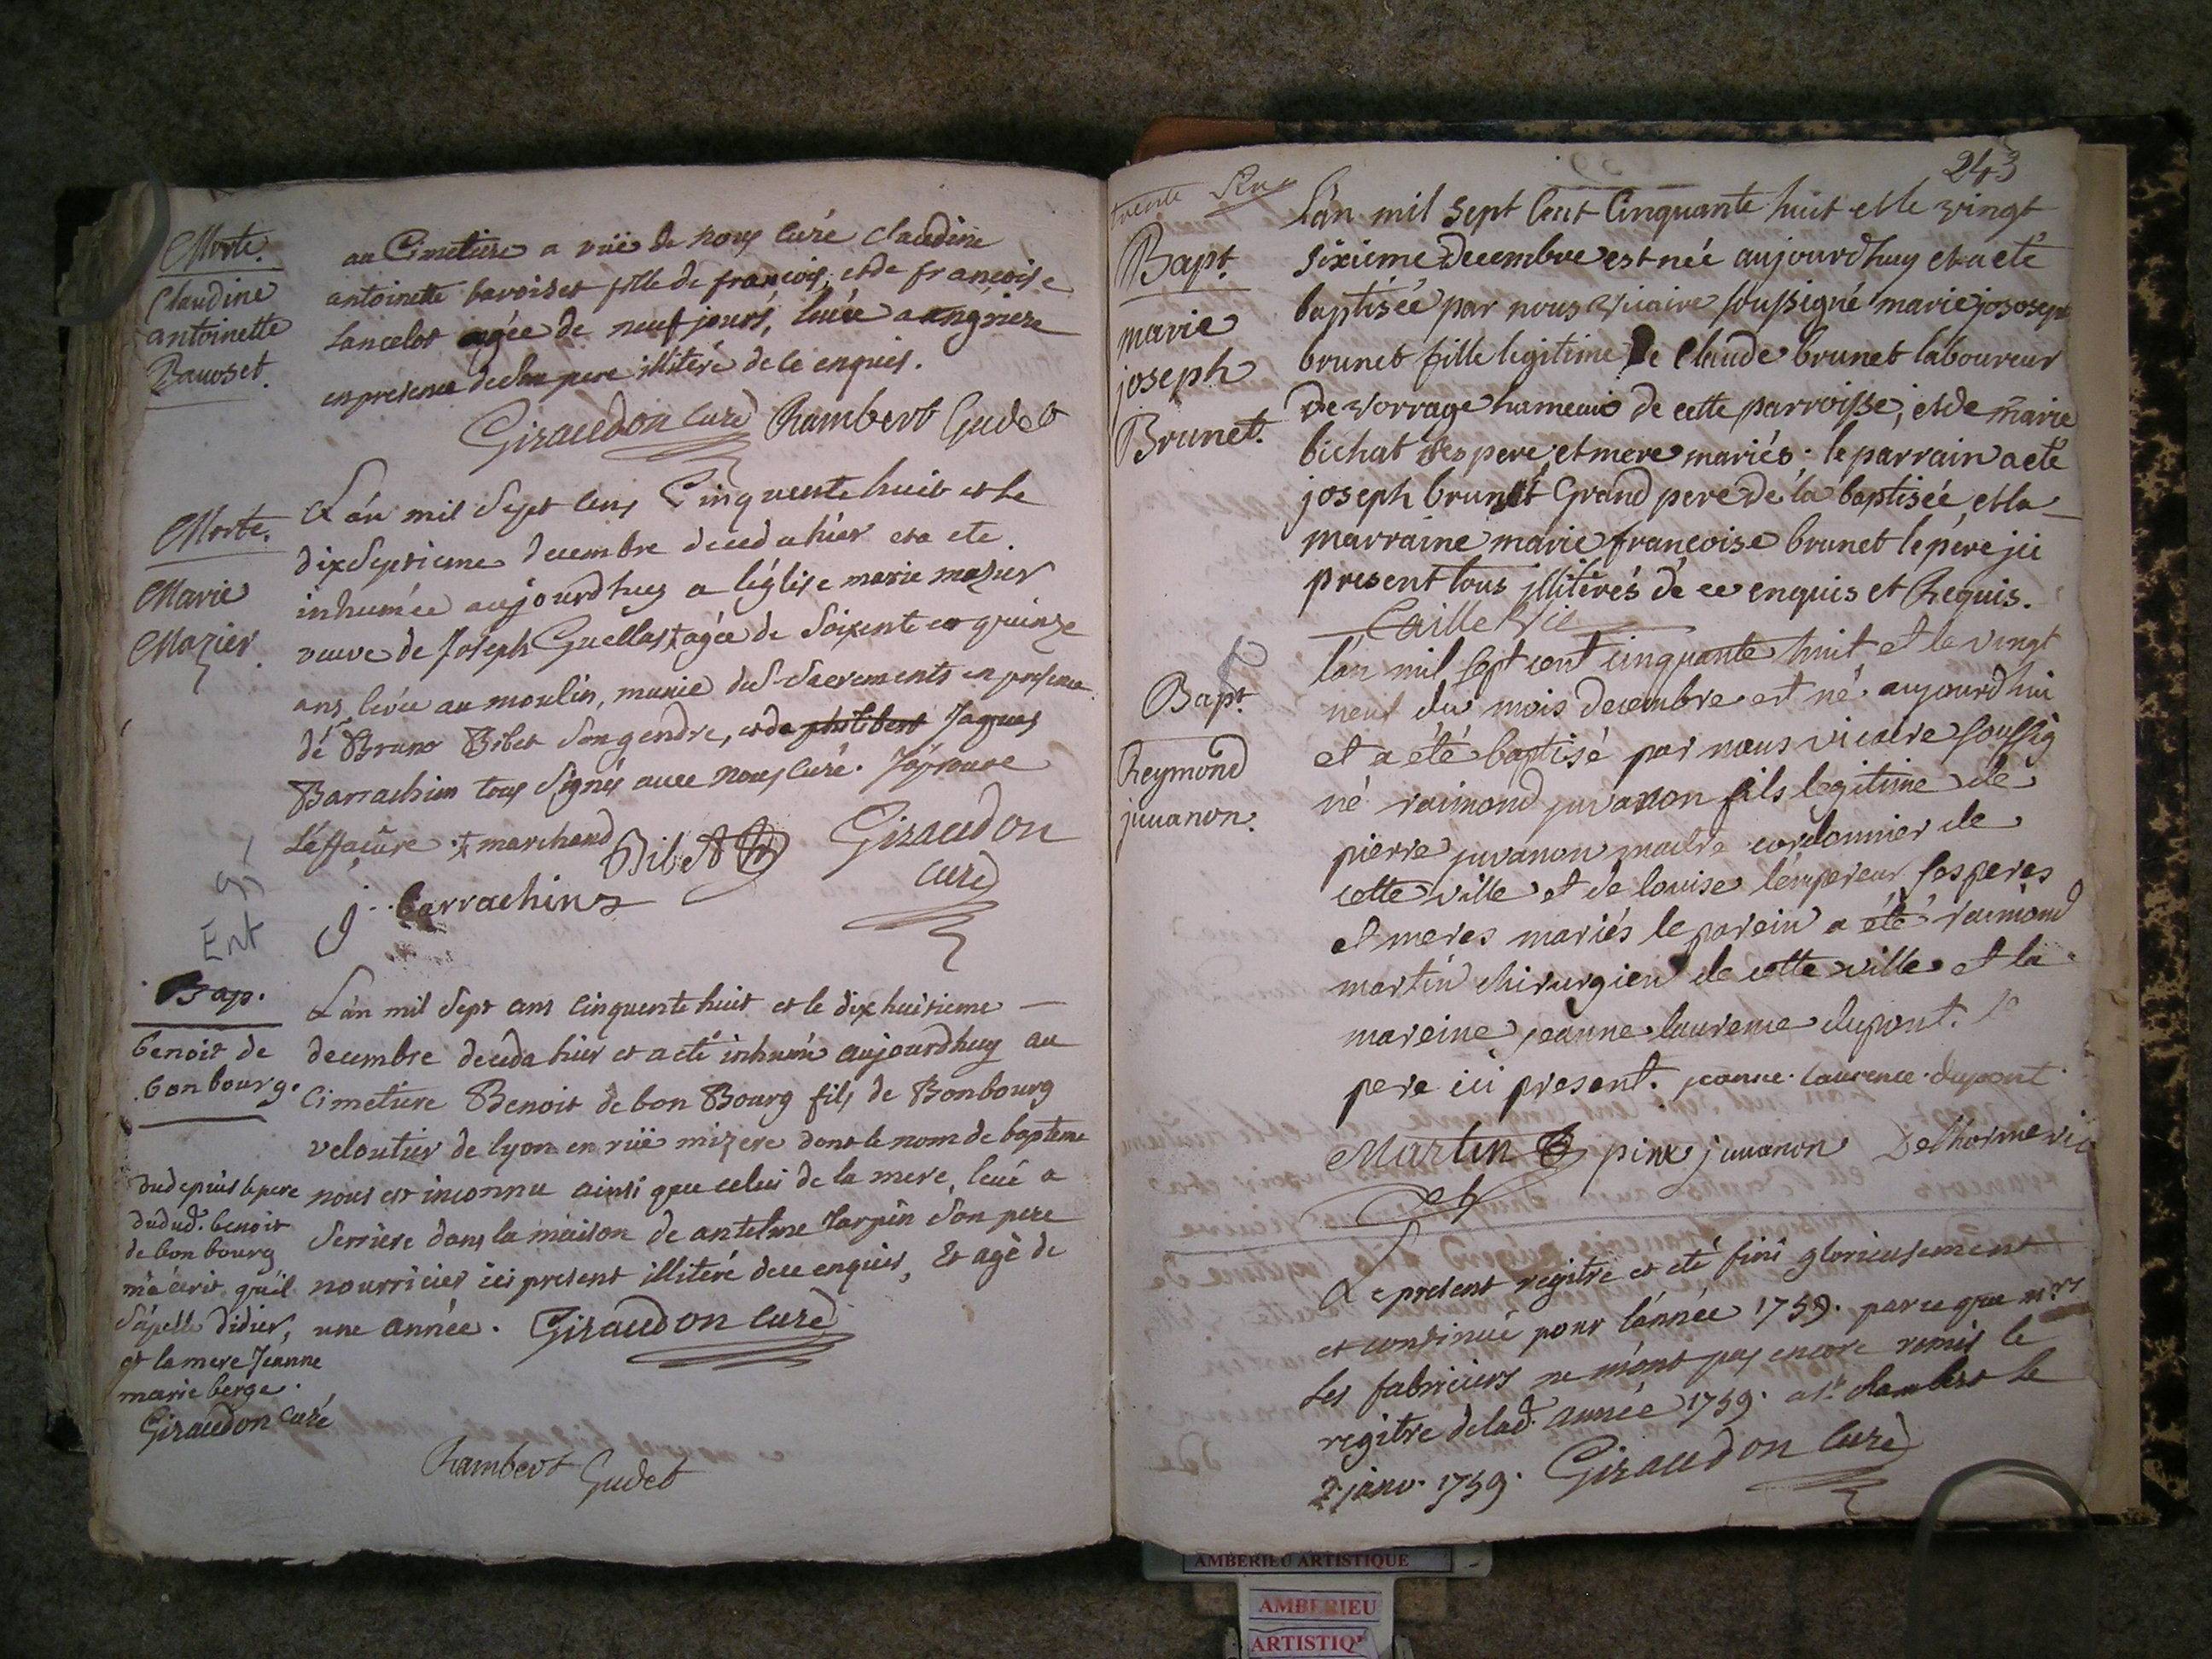 Morte.
Claudine
antoinette
Bavoset.
au Cimetiere a vüe de nous curé claudine
antoinette bavoises fille de françois, et de françoise
Lancelot agée de neuf jours, levée a angriere
en presence de son pere illiteré de ce enquis.
Giraudon curé Rambert Gudet
Morte.
Marie
Mazier
L'an mil Sept cens Cinquente huit et le
dixseptieme decembre deceda hier et a ete
inhumée aujourdhuy a l'église marie mazier
veuve de Joseph Guellas+ agée de Soixente et quinze
ans, levée au moulin, munie des Sacrements en presence
de Bruno Bibet son gendre, et de philibert Jaques
Barrachin tous signés avec nous curé. J'approuve
L'effaçure. + marchand
Bibet Giraudon
curé
j. barrachin
9)
Ent
Bap.
benoit de
bonbourg.
L'an mil Sept cens Cinquente huit et le dix huitieme
decembre deceda hier et a eté inhumé aujourdhuy au
Cimetiere Benoit de bon Bourg fils de Bonbourg
veloutier de lyon en rüe mizere dont le nom de bapteme
nous est inconnu ainsi que celui de la mere, levé a
Serriere dans la maison de antelme Tarpin son pere
nourricier ici present illiteré de ce enquis, Et agé de
une année. Giraudon curé
du depuis le pere
dudud. benoit
de bon bourg
m'a écrit qu'il
s'apelle didier,
et la mere Jeanne
marie berge.
Giraudon curé
Rambert Gudet
243
trente
Bapt.
marie
joseph
Brunet.
L'an mil sept Cent Cinquante huit et le vingt
sixieme decembre est née aujourdhuy et a eté
baptisée par nous vicaire soussigné marie jososeph
brunet fille legitime de Claude brunet laboureur
de vorrage hameau de cette parroisse, et de marie
bichat ses pere et mere mariés; le parrain a eté
joseph brunet Grand pere de la baptisée, et la
marraine marie françoise brunet le pere jci
present tous jlliterés de ce enquis et Requis.
Caille Vic
Bapt.
Reymond
juvanon.
l'an mil sept cent cinquante huit et le vingt
neuf du mois decembre est né aujourd'hui
et a été baptisé par nous vicaire soussig
né raimond juvanon fils legitime de
pierre juvanon maitre cordonnier de
cette ville et de louise l'empereur ses peres
et meres mariés le parein a été raimond
martin chirurgien de cette ville et la
mareine jeanne laurence dupont. le
pere ici present. jeanne laurence dupont
Martin pierre juvanon Delhorme vic
Le present regitre et eté fini glorieusement
et continué pour l'année 1759. parce que mrs
Les fabriciers ne m'ont pas encore remis le
regitre de lad. année 1759. a St. Rambert le
2 janv. 1759. Giraudon Curé
AMBERIEU ARTISTIQUE
AMBERIEU
ARTISTIQ